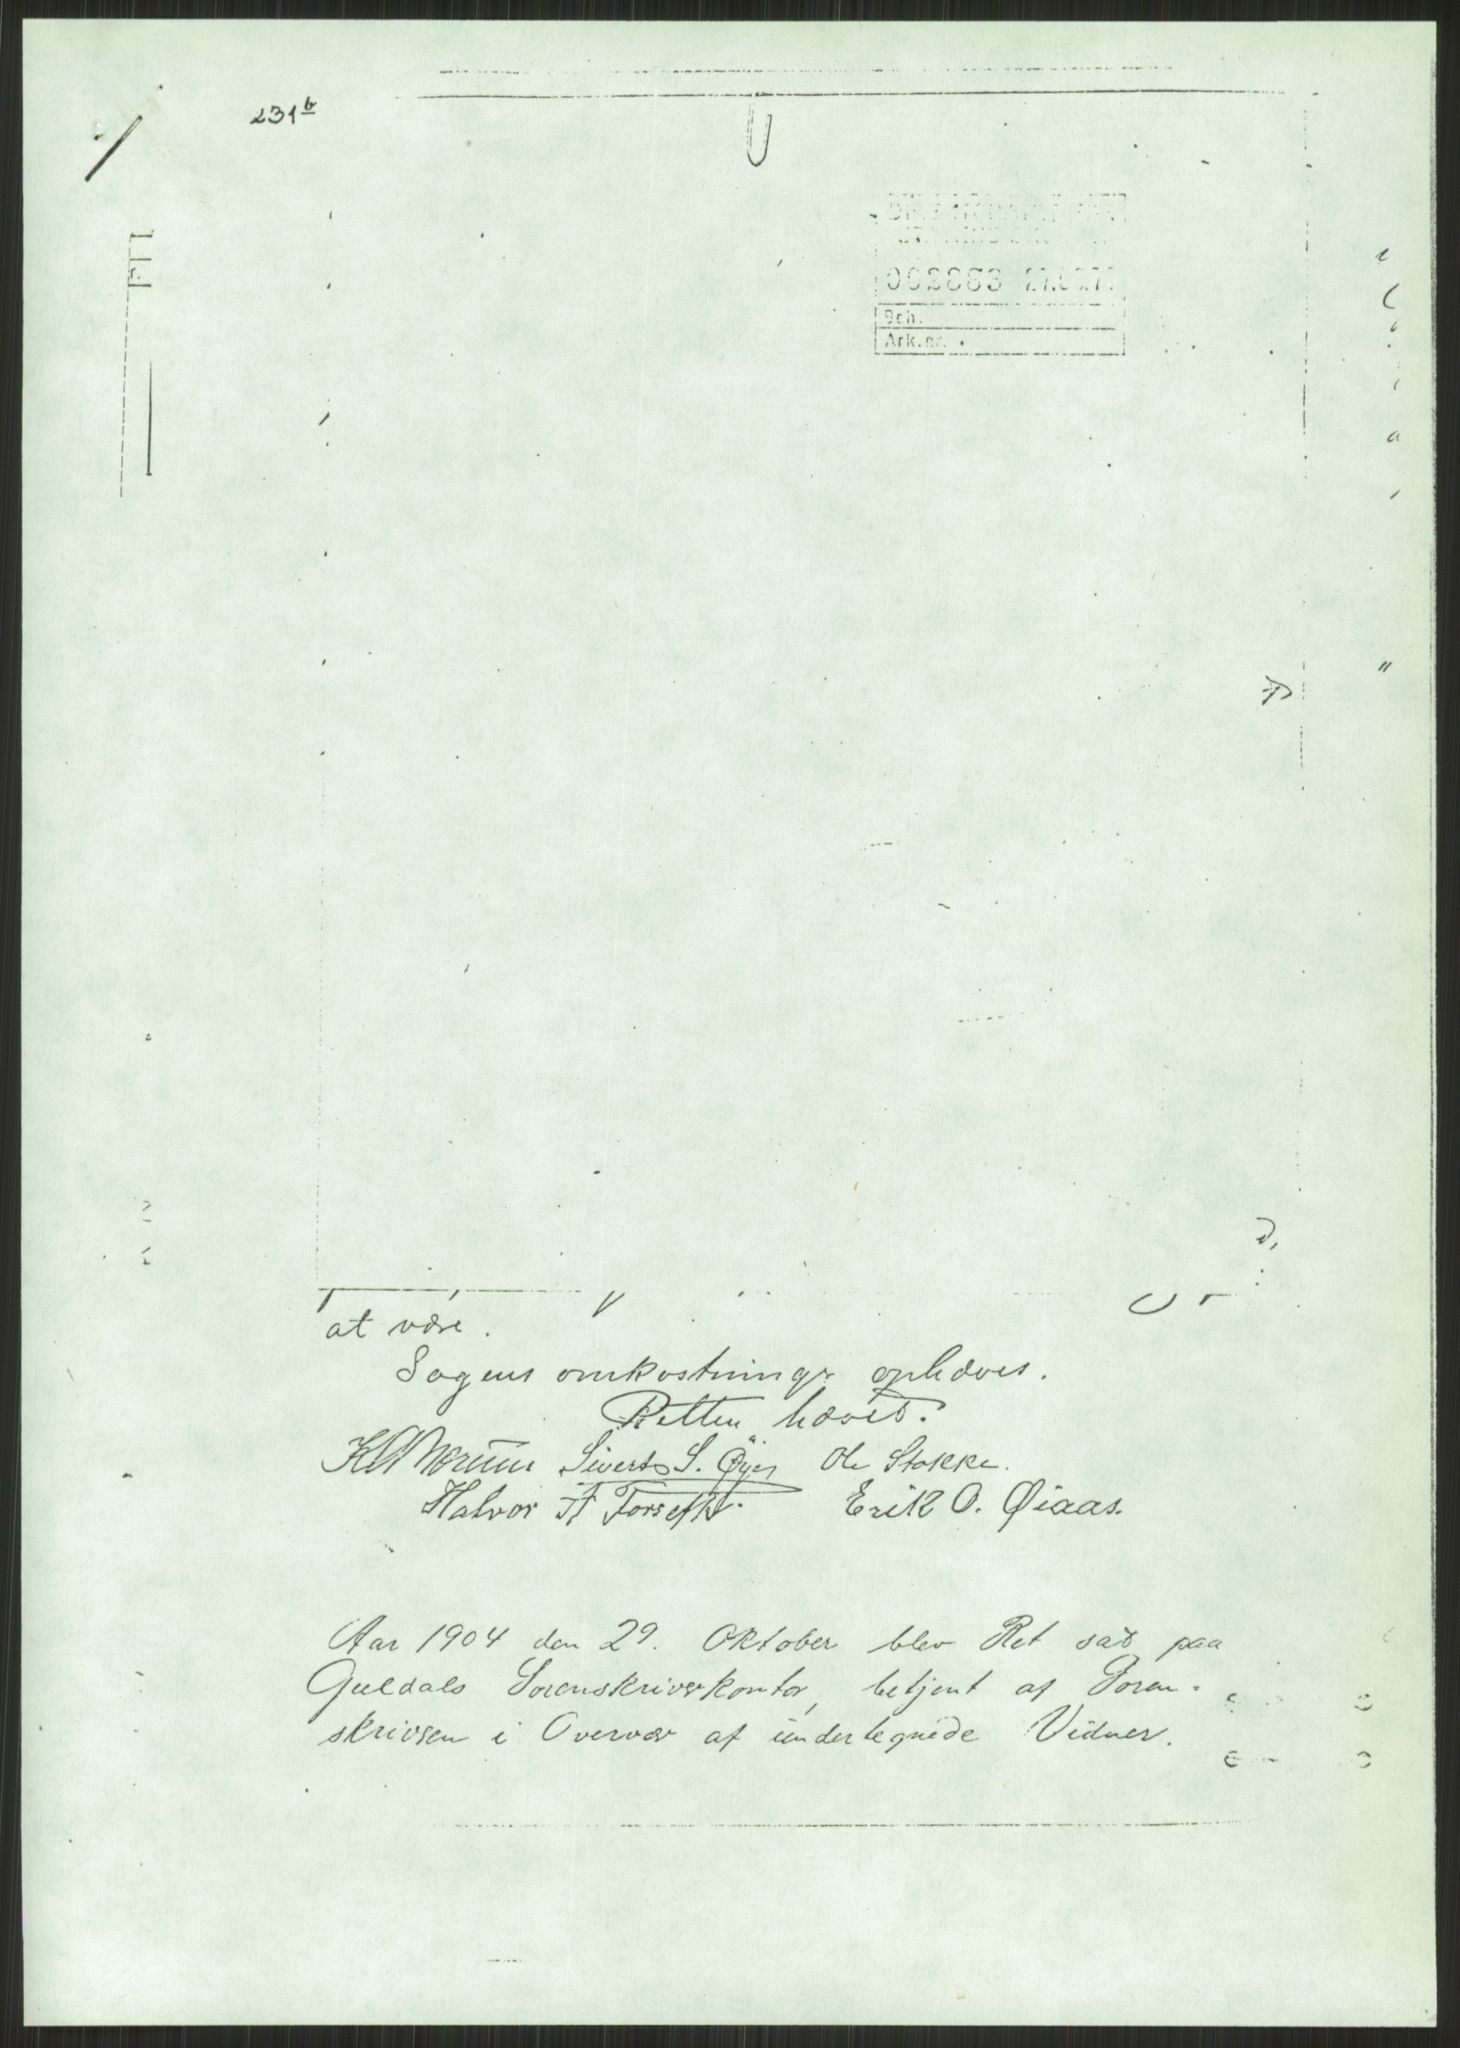 231b
FTL
Sch.
Ark.nr.
at være.
Sagens omkostninger ophæves.
Retten hævet.
Siverts S. Øyen Ole Stokke.
Halvor A Forseth. Erik O. Øiaas.
Aar 1904 den 29. Oktober blev Ret sat paa
Guldals Sorenskriverkontor, betjent af Soren-
skriveren i Overvær af undertegnede Vidner.